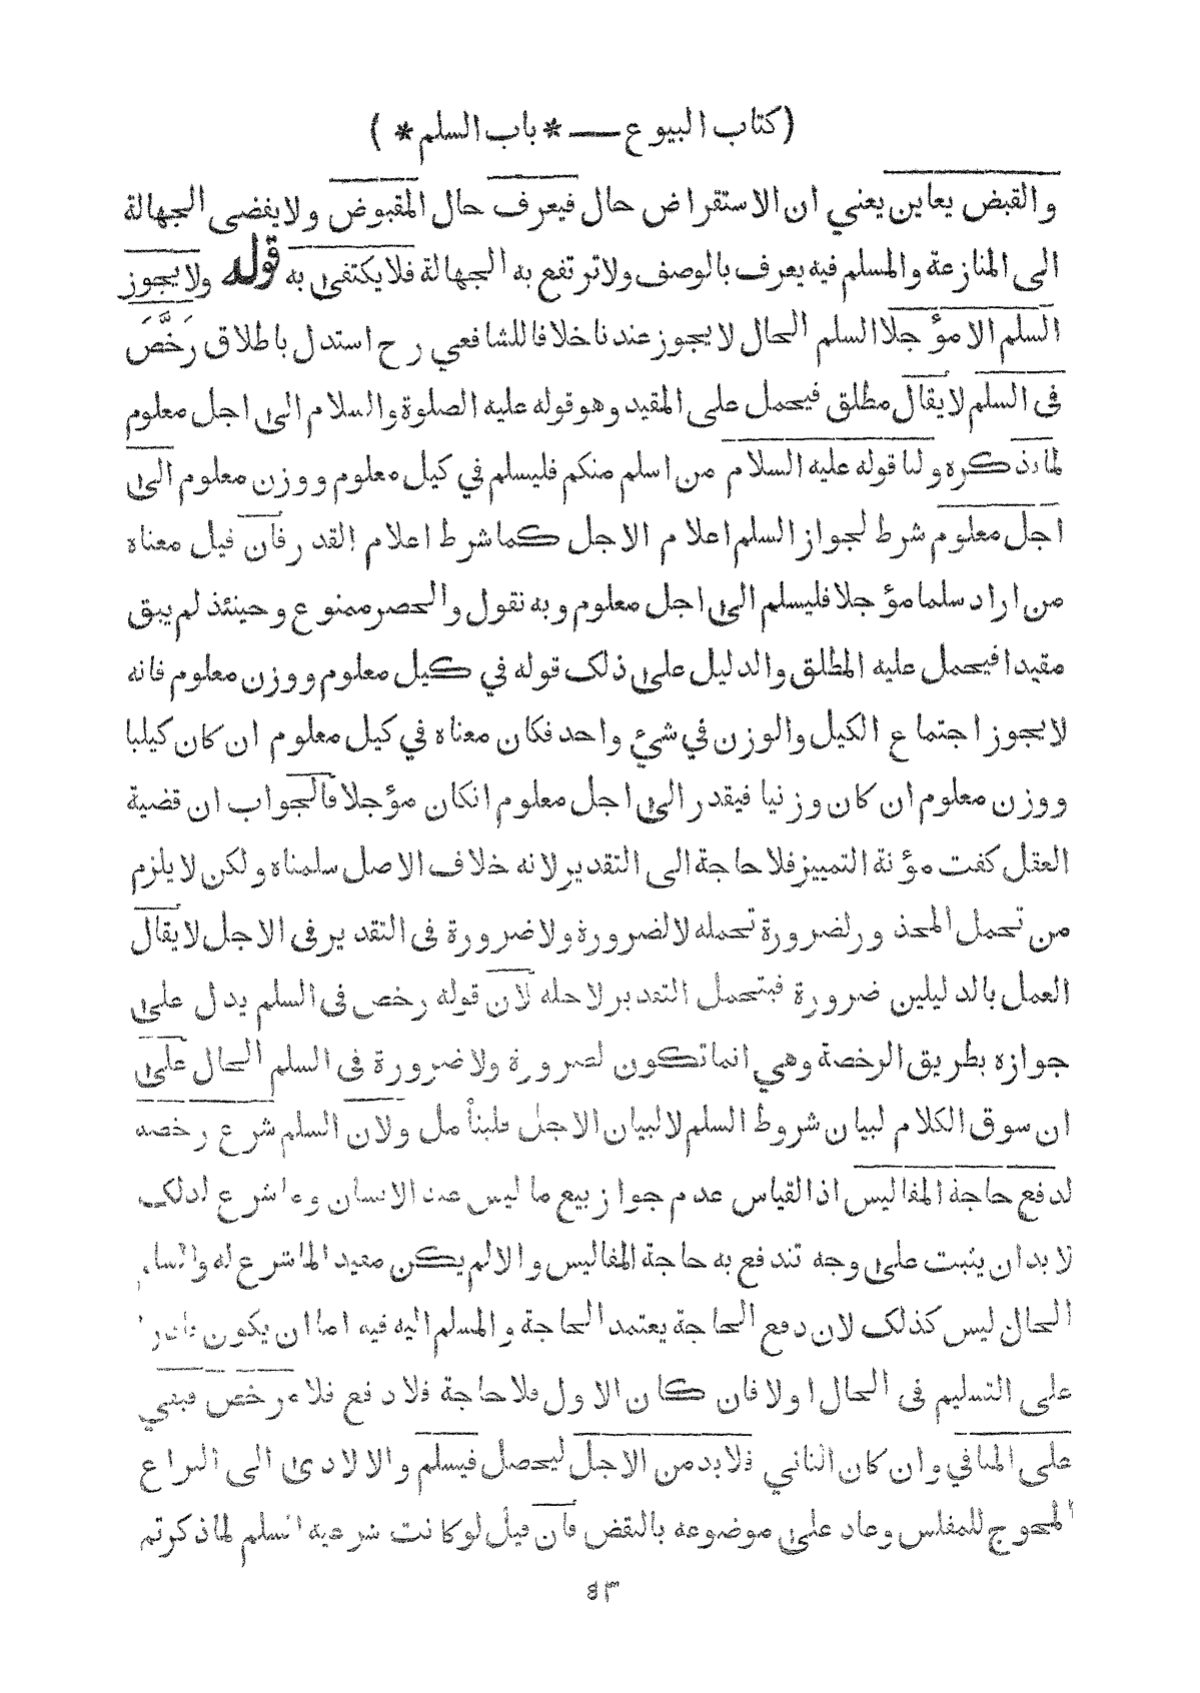 (كتاب البيوع — * باب السلم * )
والقبض يعاين يعني ان الاستقراض حال فيعرف حال المقبوض ولا يفضى الجهالة
الى المنازعة والمسلم فيه يعرف بالوصف ولا ترتفع به الجهالة فلا يكتفى به قوله ولا يجوز
السلم الا مؤجلا السلم الحال لا يجوز عندنا خلافا للشافعي رح استدل باطلاق رَخَّصَ
فى السلم لا يقال مطلق فيحمل على المقيد وهو قوله عليه الصلوة والسلام الى اجل معلوم
لما نذكره ولنا قوله عليه السلام من اسلم منكم فليسلم في كيل معلوم ووزن معلوم الى
اجل معلوم شرط لجواز السلم اعلام الاجل كما شرط اعلام القدر فان قيل معناه
من اراد سلما مؤجلا فليسلم الى اجل معلوم وبه نقول والحصر ممنوع وحينئذ لم يبق
مقيدا فيحمل عليه المطلق والدليل على ذلك قوله في كيل معلوم ووزن معلوم فانه
لا يجوز اجتماع الكيل والوزن في شئ واحد فكان معناه في كيل معلوم ان كان كيليا
ووزن معلوم ان كان وزنيا فيقدر الى اجل معلوم انكان مؤجلا فالجواب ان قضية
العقل كفت مؤنة التمييز فلا حاجة الى التقدير لانه خلاف الاصل سلمناه ولكن لا يلزم
من تحمل المحذور لضرورة تحمله لا لضرورة ولا ضرورة فى التقدير فى الاجل لا يقال
العمل بالدليلين ضرورة فيتحمل التقدير لاجله لان قوله رخص فى السلم يدل على
جوازه بطريق الرخصة وهي انما تكون لضرورة ولا ضرورة فى السلم الحال على
ان سوق الكلام لبيان شروط السلم لا لبيان الاجل فليتأمل ولان السلم شرع رخصة
لدفع حاجة المفاليس اذ القياس عدم جواز بيع ما ليس عند الانسان وما شرع لذلك
لا بد ان يثبت على وجه تندفع به حاجة المفاليس والا لم يكن مفيدا لما شرع له والسلم
الحال ليس كذلك لان دفع الحاجة يعتمد الحاجة والمسلم اليه فيه اما ان يكون قادرا
على التسليم فى الحال اولا فان كان الاول فلا حاجة فلا دفع فلا مرخص فبقي
على المنافي وان كان الثاني فلا بد من الاجل ليحصل فيسلم والا لادى الى النزاع
المحوج للمفلس وعاد على موضوعه بالنقض فان قيل لو كانت شرعية السلم لما ذكرتم
٤٣